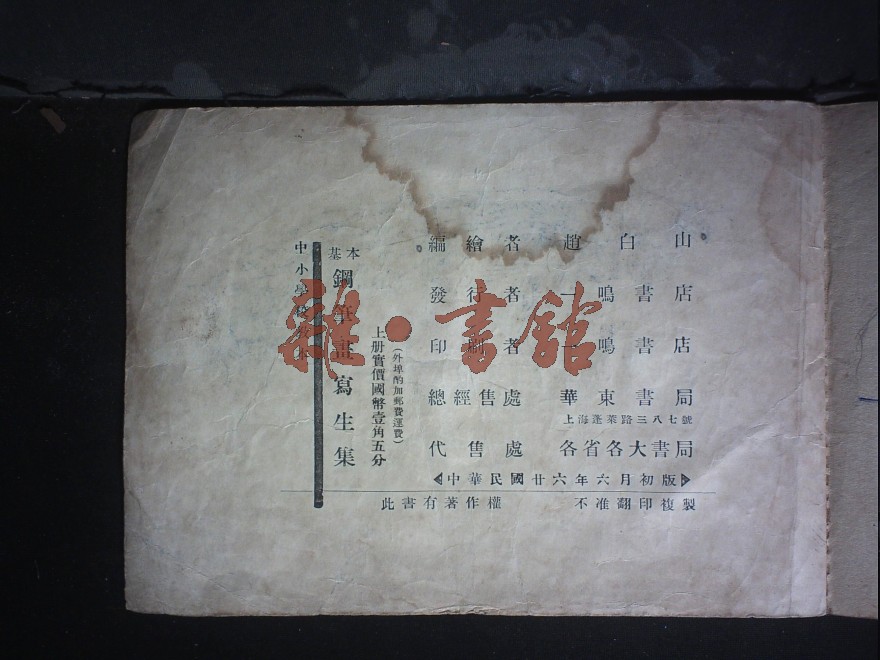 中小學校教本
基本
鋼筆畫寫生集
上册實價國幣壹角五分
(外埠酌加郵費運費)
編繪者 趙白山
發行者 一鳴書店
印刷者 一鳴書店
總經售處 華東書局
上海蓬萊路三八七號
代售處 各省各大書局
中華民國廿六年六月初版
此書有著作權 不准翻印複製
雜·書館